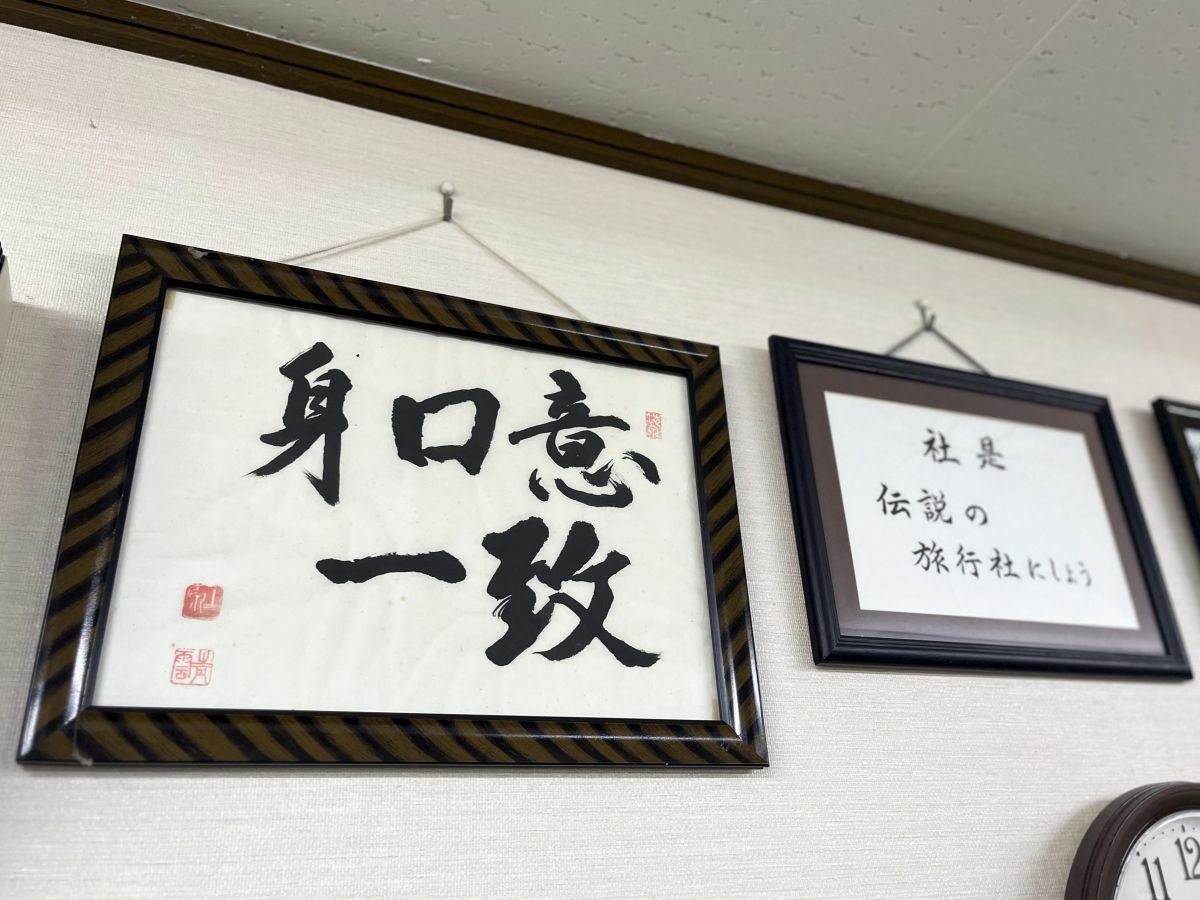 身口意
一致
社是
伝説の
旅行社にしょう
11 12